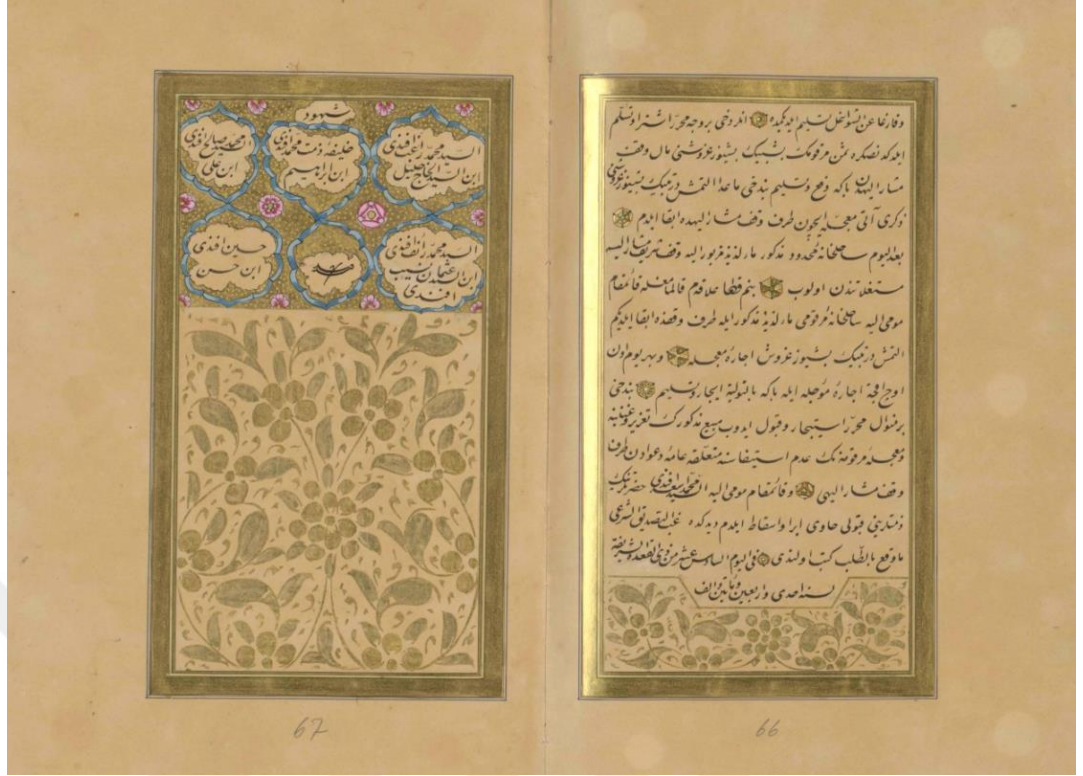 وفارغا عن الشواغل تسليم ايدكده انلر دخى بروجه محرر اشترا وتسلم
ايلدكدنصكره ثمن مرقومك بشبيك بشيوز غروشنى مال وقف
مشار اليهادن باكه دفع وتسليم بندخى ماعدا التمش درتبيك بشيوز غروشى
ذكرى آتى معجله ايچون طرف وقف مشار اليهده ابقا ايلدم
بعد اليوم ساحلخانه محدود مذكور مارلذيذ مزبور اليه وقف شريف مشار اليه
مستغلاتندن اولوب قائمقام
مومى اليه ساحلخانه مرقومى مارلذيذ مذكور ايله طرف وقفده ابقا ايلديكم
التمش درتبيك بشيوز غروش اجارۀ معجله وبهر يوم اون
اوچر اقچه اجارۀ مؤجله ايله باكه بالتوليه ايجار وتسليم بندخى
بر منوال محرر استيجار وقبول ايدوب مبيع مذكورك تغرير وغبنينه
ومعجلۀ مرقومه نك عدم استيفاسنه متعلقه عامۀ دعوادن طرف
وقف مشار اليهى وقائمقام مومى اليه السيد محمد اسعد افندى حضرتلرينك
ذمتلرينى قبولى حاوى ابرا واسقاط ايلدم ديدكده غب التصديق الشرعى
ماوقع بالطلب كتب اولندى فى اليوم السادس عشر من ذى القعدة الشريفة
لسنة احدى واربعين ومأتين والف
66
شهود
السيد محمد راغب افندى
ابن السيد الحاج خليل
خليفه ذن محمد افندى
ابن ابراهيم
محمد صالح افندى
ابن على
السيد محمد رائف افندى
ابن السيد نسيب
افندى
حسين افندى
ابن حسن
67